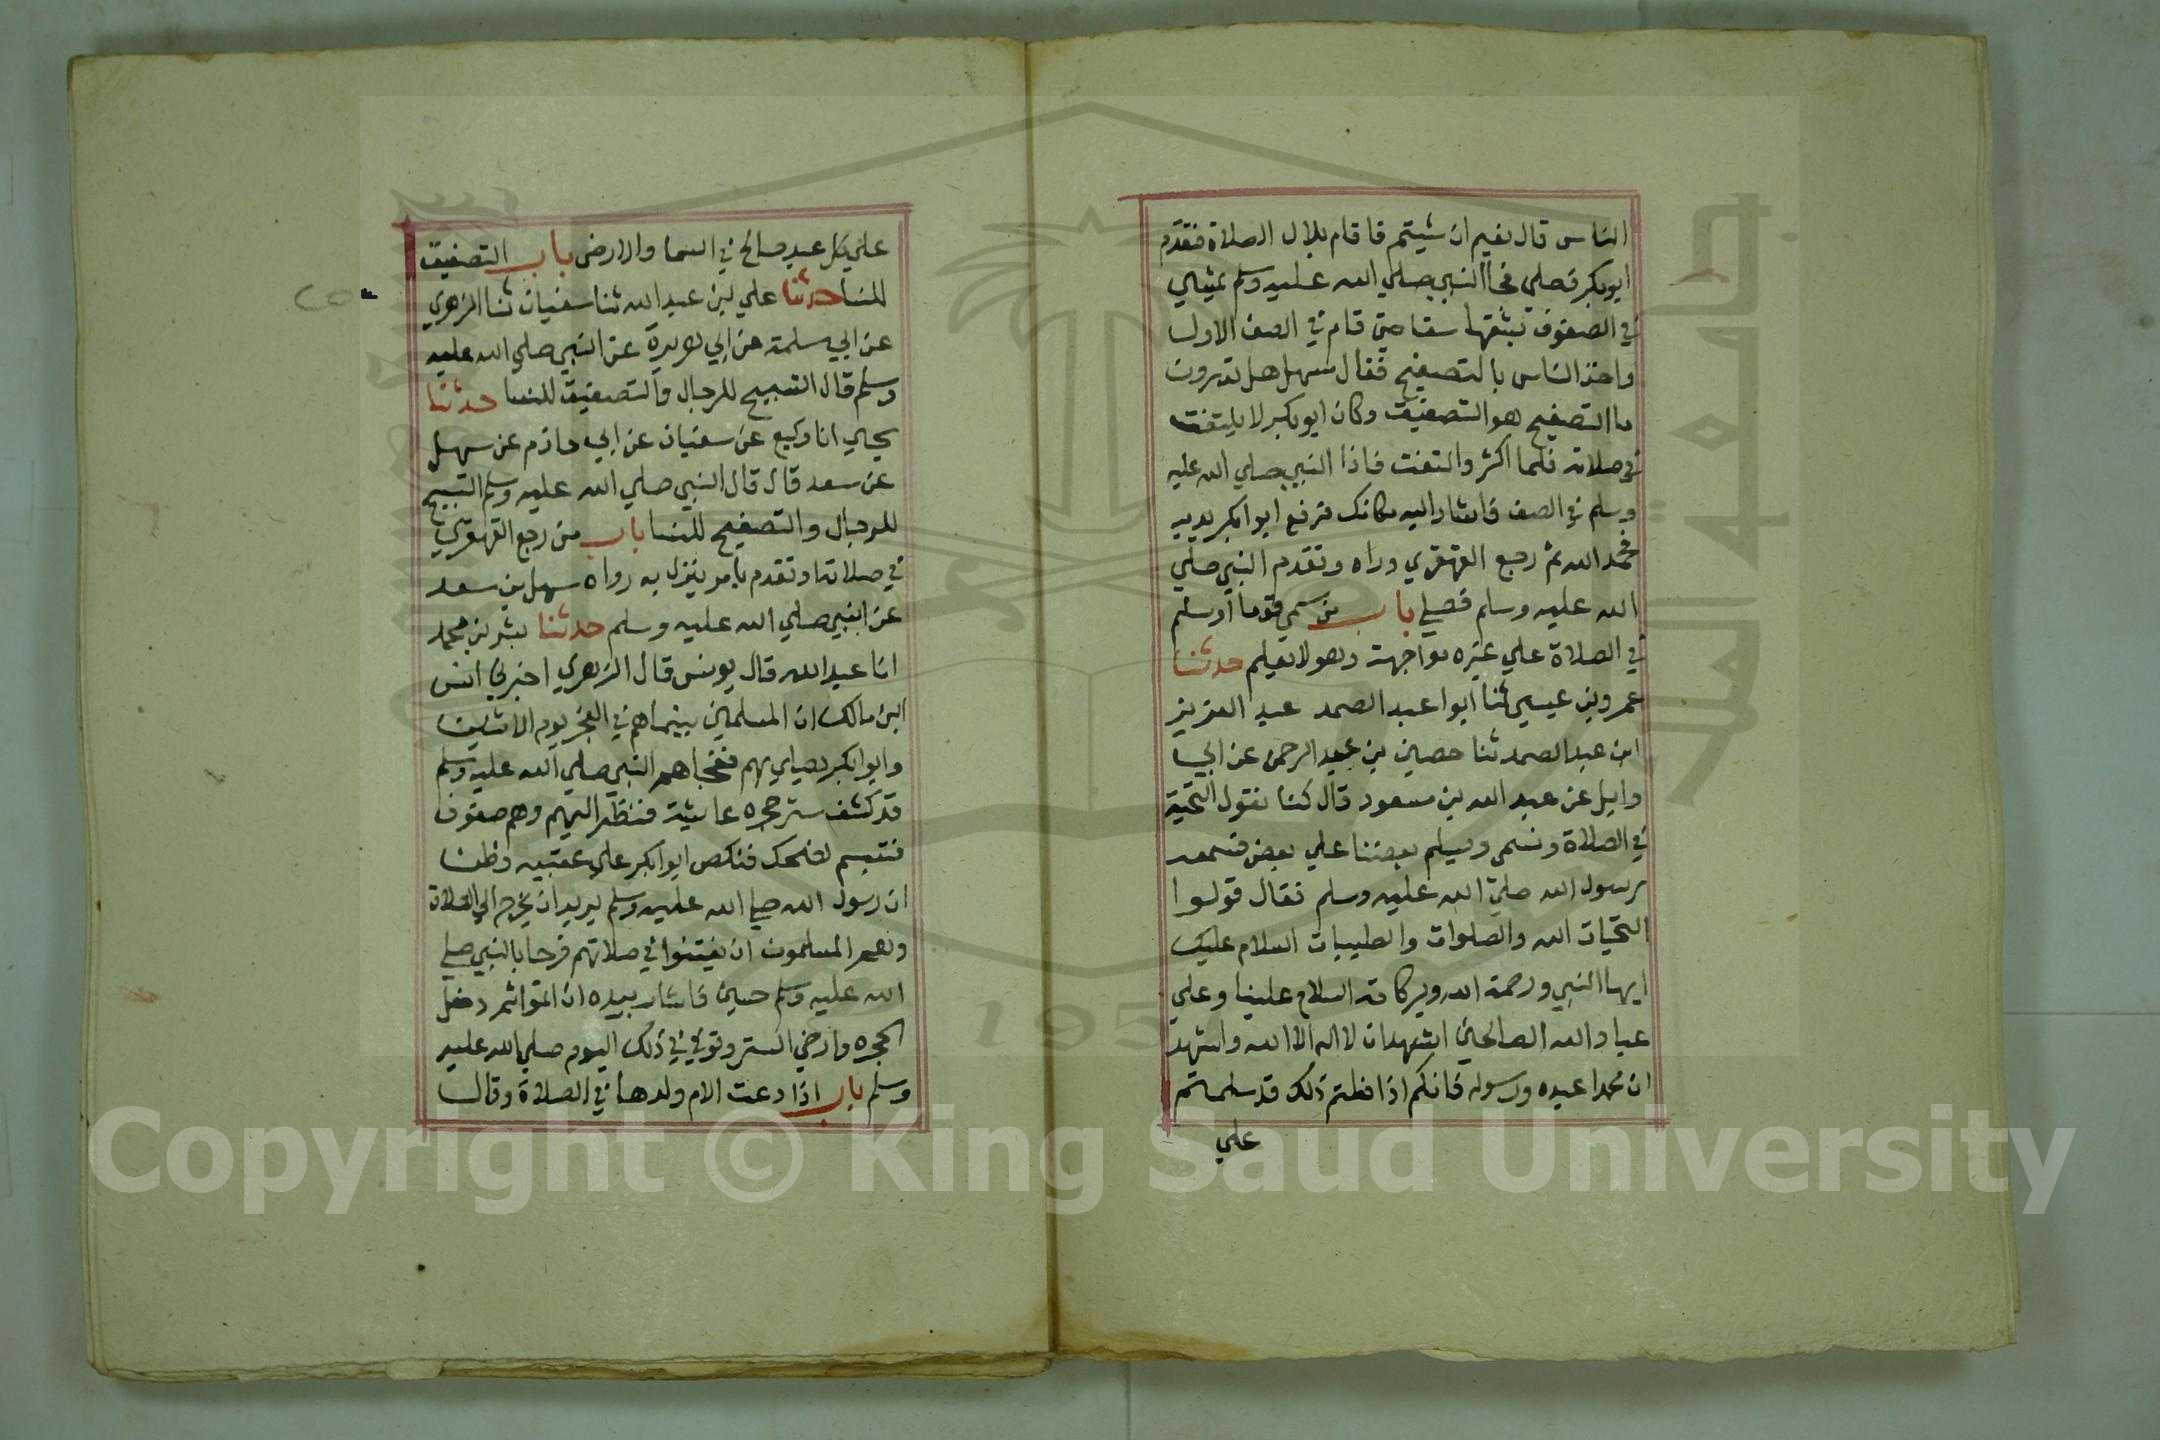 الناس قال نعيم ان شيتم فاقام بلال الصلاة فتقدم
ابوبكر فصلي فجاالنبي صلي الله عليه وسلم يمشي
في الصفوف يشقها سقا حتي قام في الصف الاول
واخذ الناس بالتصفيح فقال سهل هل تدرون
ما التصفيح هو التصفيق وكان ابوبكر لا يلتفت
في صلاته فلما اكثر والتفت فاذا النبي صلي الله عليه
وسلم في الصف فاشار اليه مكانك فرفع ابوابكر يديه
فحمد الله ثم رجع القهقري وراه وتقدم النبي صلي
الله عليه وسلم فصلي باب من سمي قوما اوسلم
في الصلاة علي غيره مواجهة وهو لا يعلم حدثنا
عمروبن عيسي ثنا ابوا عبد الصمد عبد العزيز
ابن عبد الصمد ثنا حصين بن عبد الرحمن عن ابي
وايل عن عبد الله بن مسعود قال كنا نقول التحية
في الصلاة ونسمي ويسلم بعضنا علي بعض فسمعه
رسول الله صلي الله عليه وسلم فقال قولوا
التحيات الله والصلوات والطيبات السلام عليك
ايها النبي ورحمة الله وبركاته السلام علينا وعلي
عباد الله الصالحين اشهد ان لا اله الا الله واشهد
ان محمدا عبده ورسوله فانكم اذا فعلتم ذلك قد سلمتم
علي
علي كل عبد صالح في السما والارض باب التصفيق
للنسا حدثنا علي بن عبد الله ثنا سفيان ثنا الزهري
عن ابي سلمة عن ابي هريرة عن النبي صلي الله عليه
وسلم قال التسبيح للرجال والتصفيق للنسا حدثنا
يحيي انا وكيع عن سفيان عن ابي حازم عن سهل
عن سعد قال قال النبي صلي الله عليه وسلم التسبيح
للرجال والتصفيح للنسا باب من رجع القهقري
في صلاته اوتقدم بامر ينزل به رواه سهل بن سعد
عن النبي صلي الله عليه وسلم حدثنا بشر بن محمد
انا عبد الله قال يونس قال الزهري اخبرني انس
ابن مالك ان المسلمين بينما هم في الفجر يوم الاثنين
وابوابكر يصلي بهم ففجاهم النبي صلي الله عليه وسلم
قد كشف ستر حجره عايشة فنظر اليهم وهم صفوف
فتبسم يضحك فنكص ابوابكر علي عقبيه وظن
ان رسول الله صلي الله عليه وسلم يريد ان يخرج الي الصلاة
وهم المسلمون ان يفتنوا في صلاتهم فرحا بالنبي صلي
الله عليه وسلم حين فاشار بيده ان اتموا ثم دخل
الحجره وارخي الستر وتوفي في ذلك اليوم صلي الله عليه
وسلم باب اذا دعت الام ولدها في الصلاة وقال
Copyright © King Saud University